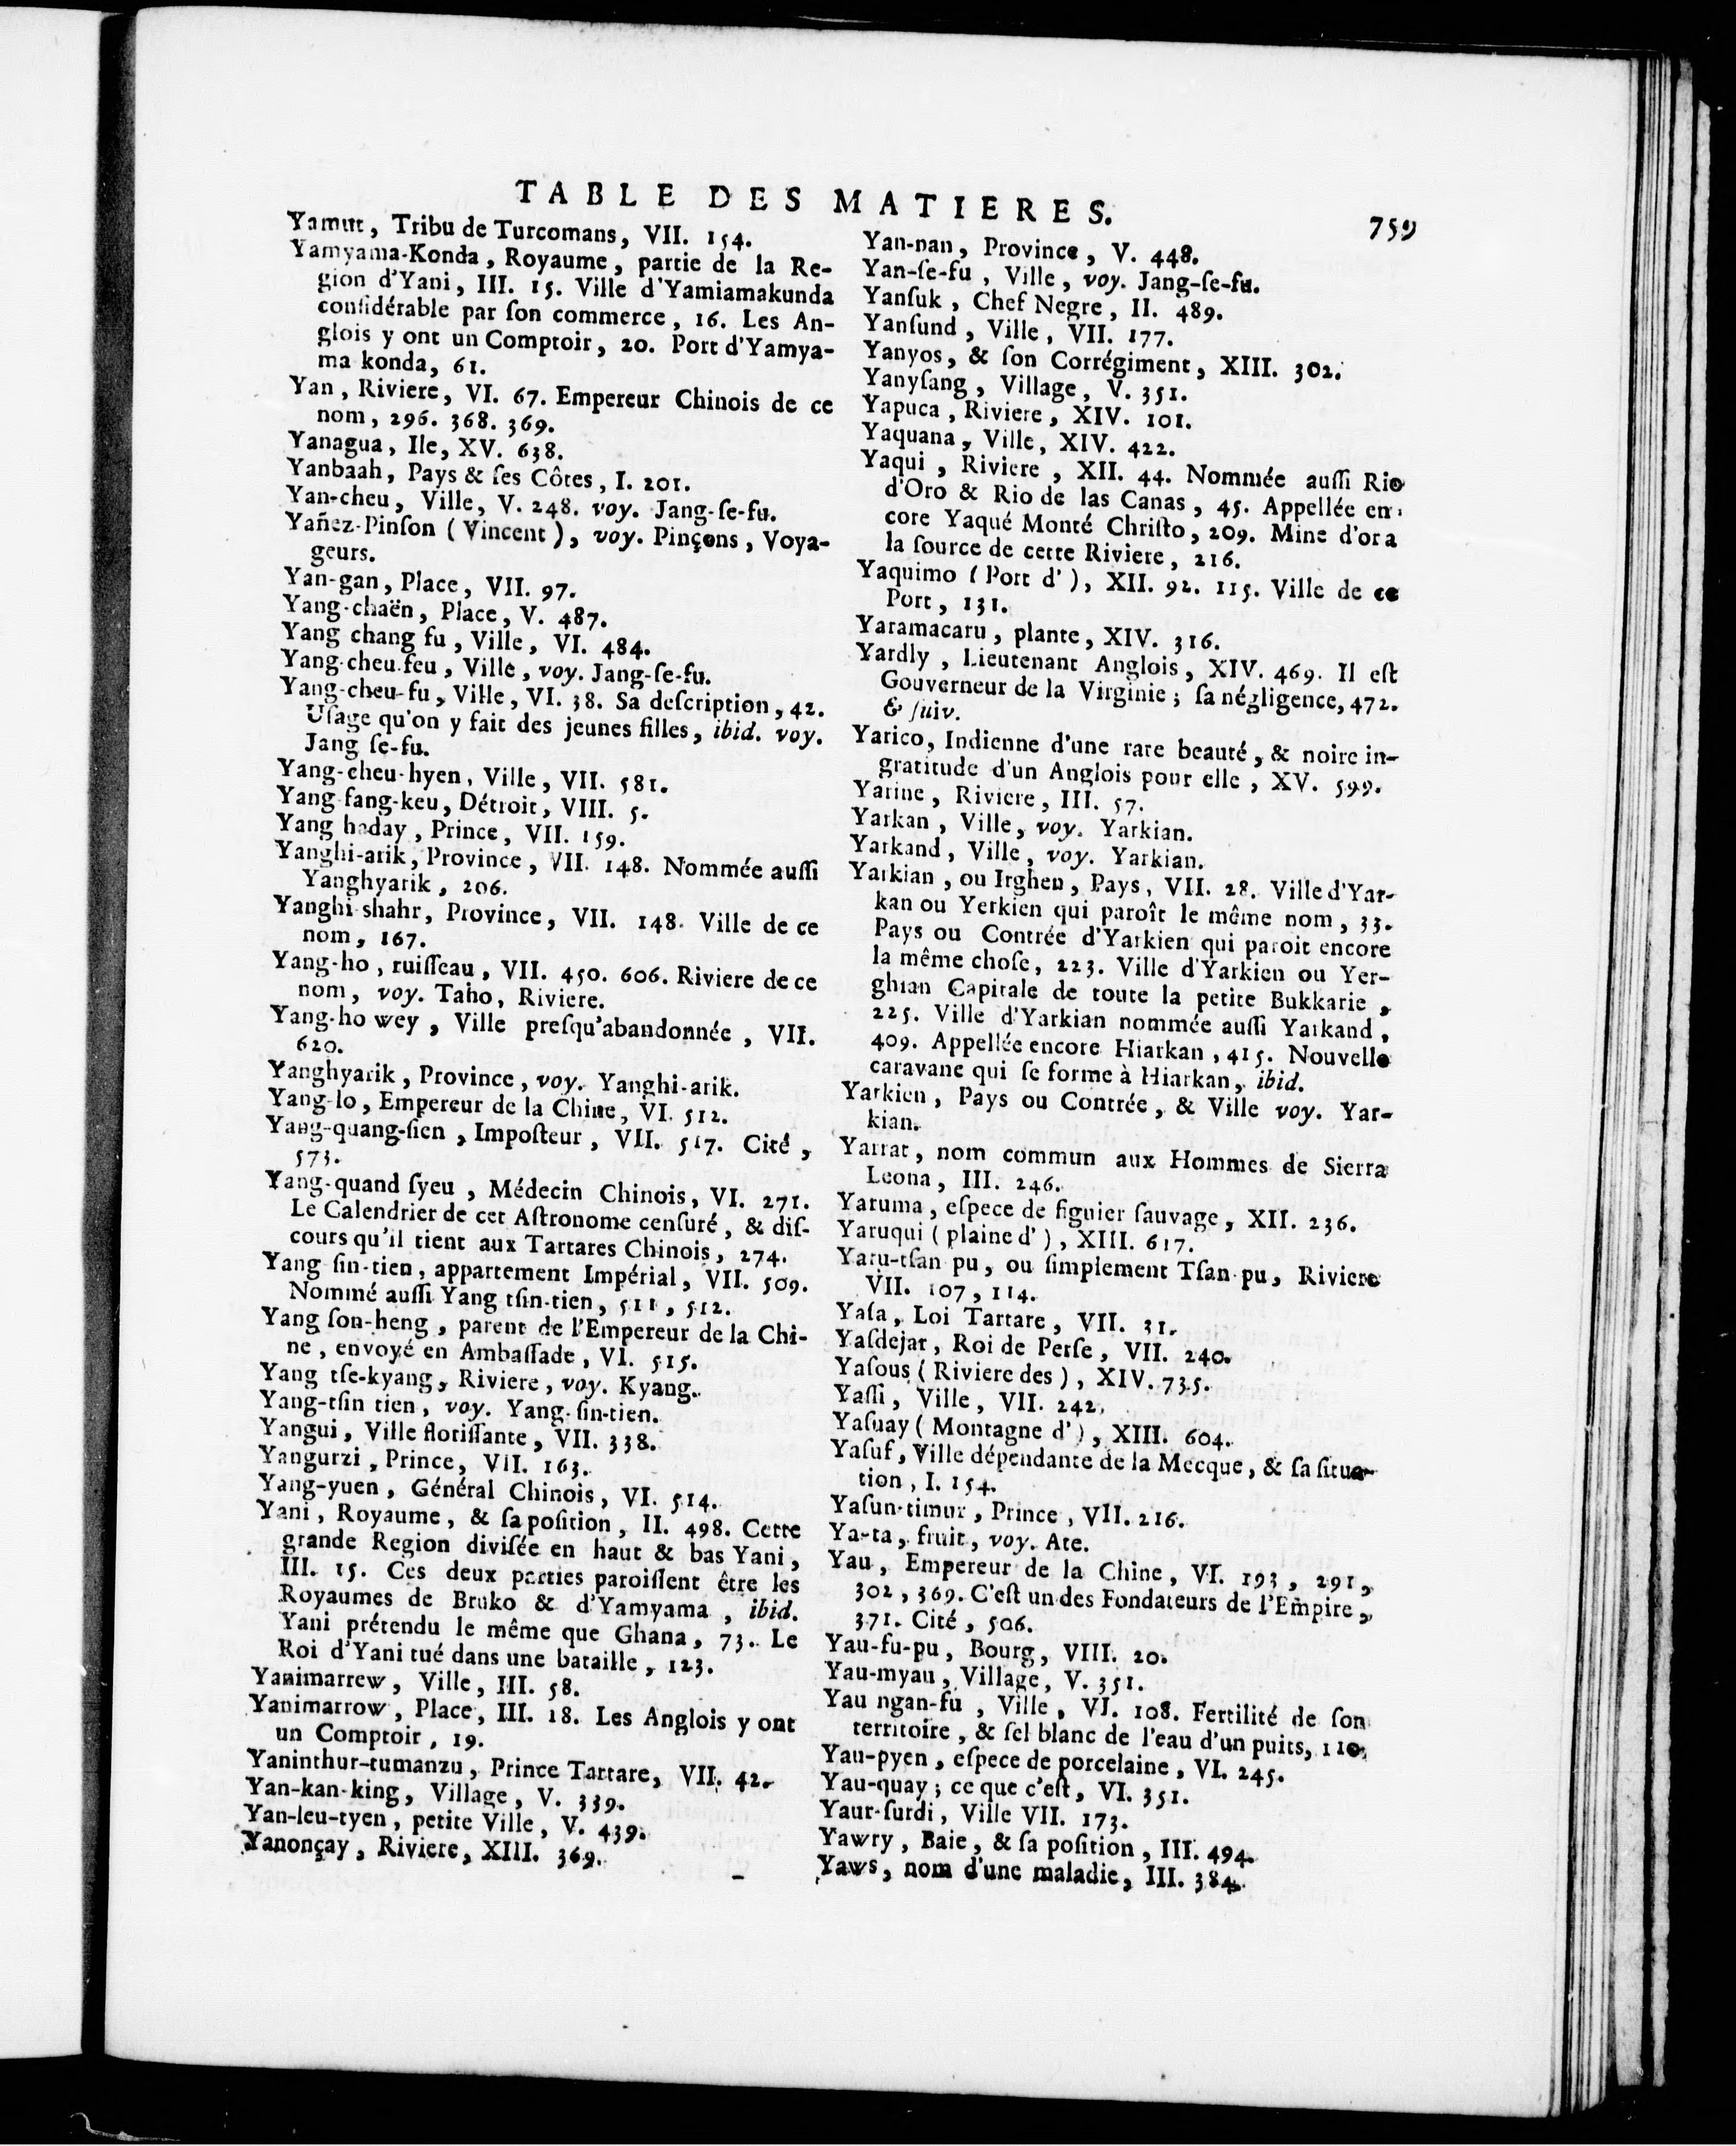 TABLE DES MATIERES.
759
Yamut, Tribu de Turcomans, VII. 154.
Yamyama-Konda, Royaume, partie de la Re-
gion d'Yani, III. 15. Ville d'Yamiamakunda
considérable par ſon commerce, 16. Les An-
glois y ont un Comptoir, 20. Port d'Yamya-
ma konda, 61.
Yan, Riviere, VI. 67. Empereur Chinois de ce
nom, 296. 368. 369.
Yanagua, Ile, XV. 638.
Yanbaah, Pays & ſes Côtes, I. 201.
Yan-cheu, Ville, V. 248. voy. Jang-ſe-fu.
Yañez-Pinſon (Vincent), voy. Pinçons, Voya-
geurs.
Yan-gan, Place, VII. 97.
Yang-chaën, Place, V. 487.
Yang chang fu, Ville, VI. 484.
Yang-cheu-feu, Ville, voy. Jang-ſe-fu.
Yang-cheu-fu, Ville, VI. 38. Sa deſcription, 42.
Uſage qu'on y fait des jeunes filles, ibid. voy.
Jang ſe-fu.
Yang-cheu-hyen, Ville, VII. 581.
Yang fang-keu, Détroit, VIII. 5.
Yang haday, Prince, VII. 159.
Yanghi-arik, Province, VII. 148. Nommée auſſi
Yanghyarik, 206.
Yanghi shahr, Province, VII. 148. Ville de ce
nom, 167.
Yang-ho, ruiſſeau, VII. 450. 606. Riviere de ce
nom, voy. Taho, Riviere.
Yang-ho wey, Ville preſqu'abandonnée, VII.
620.
Yanghyarik, Province, voy. Yanghi-arik.
Yang-lo, Empereur de la Chine, VI. 512.
Yang-quang-ſien, Impoſteur, VII. 517. Cité,
573.
Yang-quand ſyeu, Médecin Chinois, VI. 271.
Le Calendrier de cet Aſtronome cenſuré, & diſ-
cours qu'il tient aux Tartares Chinois, 274.
Yang ſin-tien, appartement Impérial, VII. 509.
Nommé auſſi Yang tſin-tien, 511, 512.
Yang ſon-heng, parent de l'Empereur de la Chi-
ne, envoyé en Ambaſſade, VI. 515.
Yang tſe-kyang, Riviere, voy. Kyang.
Yang-tſin tien, voy. Yang-ſin-tien.
Yangui, Ville floriſſante, VII. 338.
Yangurzi, Prince, VII. 163.
Yang-yuen, Général Chinois, VI. 514.
Yani, Royaume, & ſa poſition, II. 498. Cette
grande Region diviſée en haut & bas Yani,
III. 15. Ces deux parties paroiſſent être les
Royaumes de Bruko & d'Yamyama, ibid.
Yani prétendu le même que Ghana, 73. Le
Roi d'Yani tué dans une bataille, 123.
Yanimarrew, Ville, III. 58.
Yanimarrow, Place, III. 18. Les Anglois y ont
un Comptoir, 19.
Yaninthur-tumanzu, Prince Tartare, VII. 42.
Yan-kan-king, Village, V. 339.
Yan-leu-tyen, petite Ville, V. 439.
Yanonçay, Riviere, XIII. 369.
Yan-nan, Province, V. 448.
Yan-ſe-fu, Ville, voy. Jang-ſe-fu.
Yanſuk, Chef Negre, II. 489.
Yanſund, Ville, VII. 177.
Yanyos, & ſon Corrégiment, XIII. 302.
Yanyſang, Village, V. 351.
Yapuca, Riviere, XIV. 101.
Yaquana, Ville, XIV. 422.
Yaqui, Riviere, XII. 44. Nommée auſſi Rio
d'Oro & Rio de las Canas, 45. Appellée en-
core Yaqué Monté Chriſto, 209. Mine d'or a
la ſource de cette Riviere, 216.
Yaquimo (Port d'), XII. 92. 115. Ville de ce
Port, 131.
Yaramacaru, plante, XIV. 316.
Yardly, Lieutenant Anglois, XIV. 469. Il eſt
Gouverneur de la Virginie; ſa négligence, 472.
& ſuiv.
Yarico, Indienne d'une rare beauté, & noire in-
gratitude d'un Anglois pour elle, XV. 599.
Yarine, Riviere, III. 57.
Yarkan, Ville, voy. Yarkian.
Yarkand, Ville, voy. Yarkian.
Yarkian, ou Irghen, Pays, VII. 28. Ville d'Yar-
kan ou Yerkien qui paroît le même nom, 33.
Pays ou Contrée d'Yarkien qui paroit encore
la même choſe, 223. Ville d'Yarkien ou Yer-
ghian Capitale de toute la petite Bukkarie,
225. Ville d'Yarkian nommée auſſi Yarkand,
409. Appellée encore Hiarkan, 415. Nouvelle
caravane qui ſe forme à Hiarkan, ibid.
Yarkien, Pays ou Contrée, & Ville voy. Yar-
kian.
Yarrat, nom commun aux Hommes de Sierra
Leona, III. 246.
Yaruma, eſpece de figuier ſauvage, XII. 236.
Yaruqui (plaine d'), XIII. 617.
Yaru-tſan pu, ou ſimplement Tſan-pu, Riviere
VII. 107, 114.
Yaſa, Loi Tartare, VII. 31.
Yaſdejar, Roi de Perſe, VII. 240.
Yaſous (Riviere des), XIV. 735.
Yaſſi, Ville, VII. 242.
Yaſuay (Montagne d'), XIII. 604.
Yaſuf, Ville dépendante de la Mecque, & ſa ſitua-
tion, I. 154.
Yaſun-timur, Prince, VII. 216.
Ya-ta, fruit, voy. Ate.
Yau, Empereur de la Chine, VI. 193, 291,
302, 369. C'eſt un des Fondateurs de l'Empire,
371. Cité, 506.
Yau-fu-pu, Bourg, VIII. 20.
Yau-myau, Village, V. 351.
Yau ngan-fu, Ville, VI. 108. Fertilité de ſon
territoire, & ſel blanc de l'eau d'un puits, 110.
Yau-pyen, eſpece de porcelaine, VI. 245.
Yau-quay; ce que c'eſt, VI. 351.
Yaur-ſurdi, Ville VII. 173.
Yawry, Baie, & ſa poſition, III. 494.
Yaws, nom d'une maladie, III. 384.